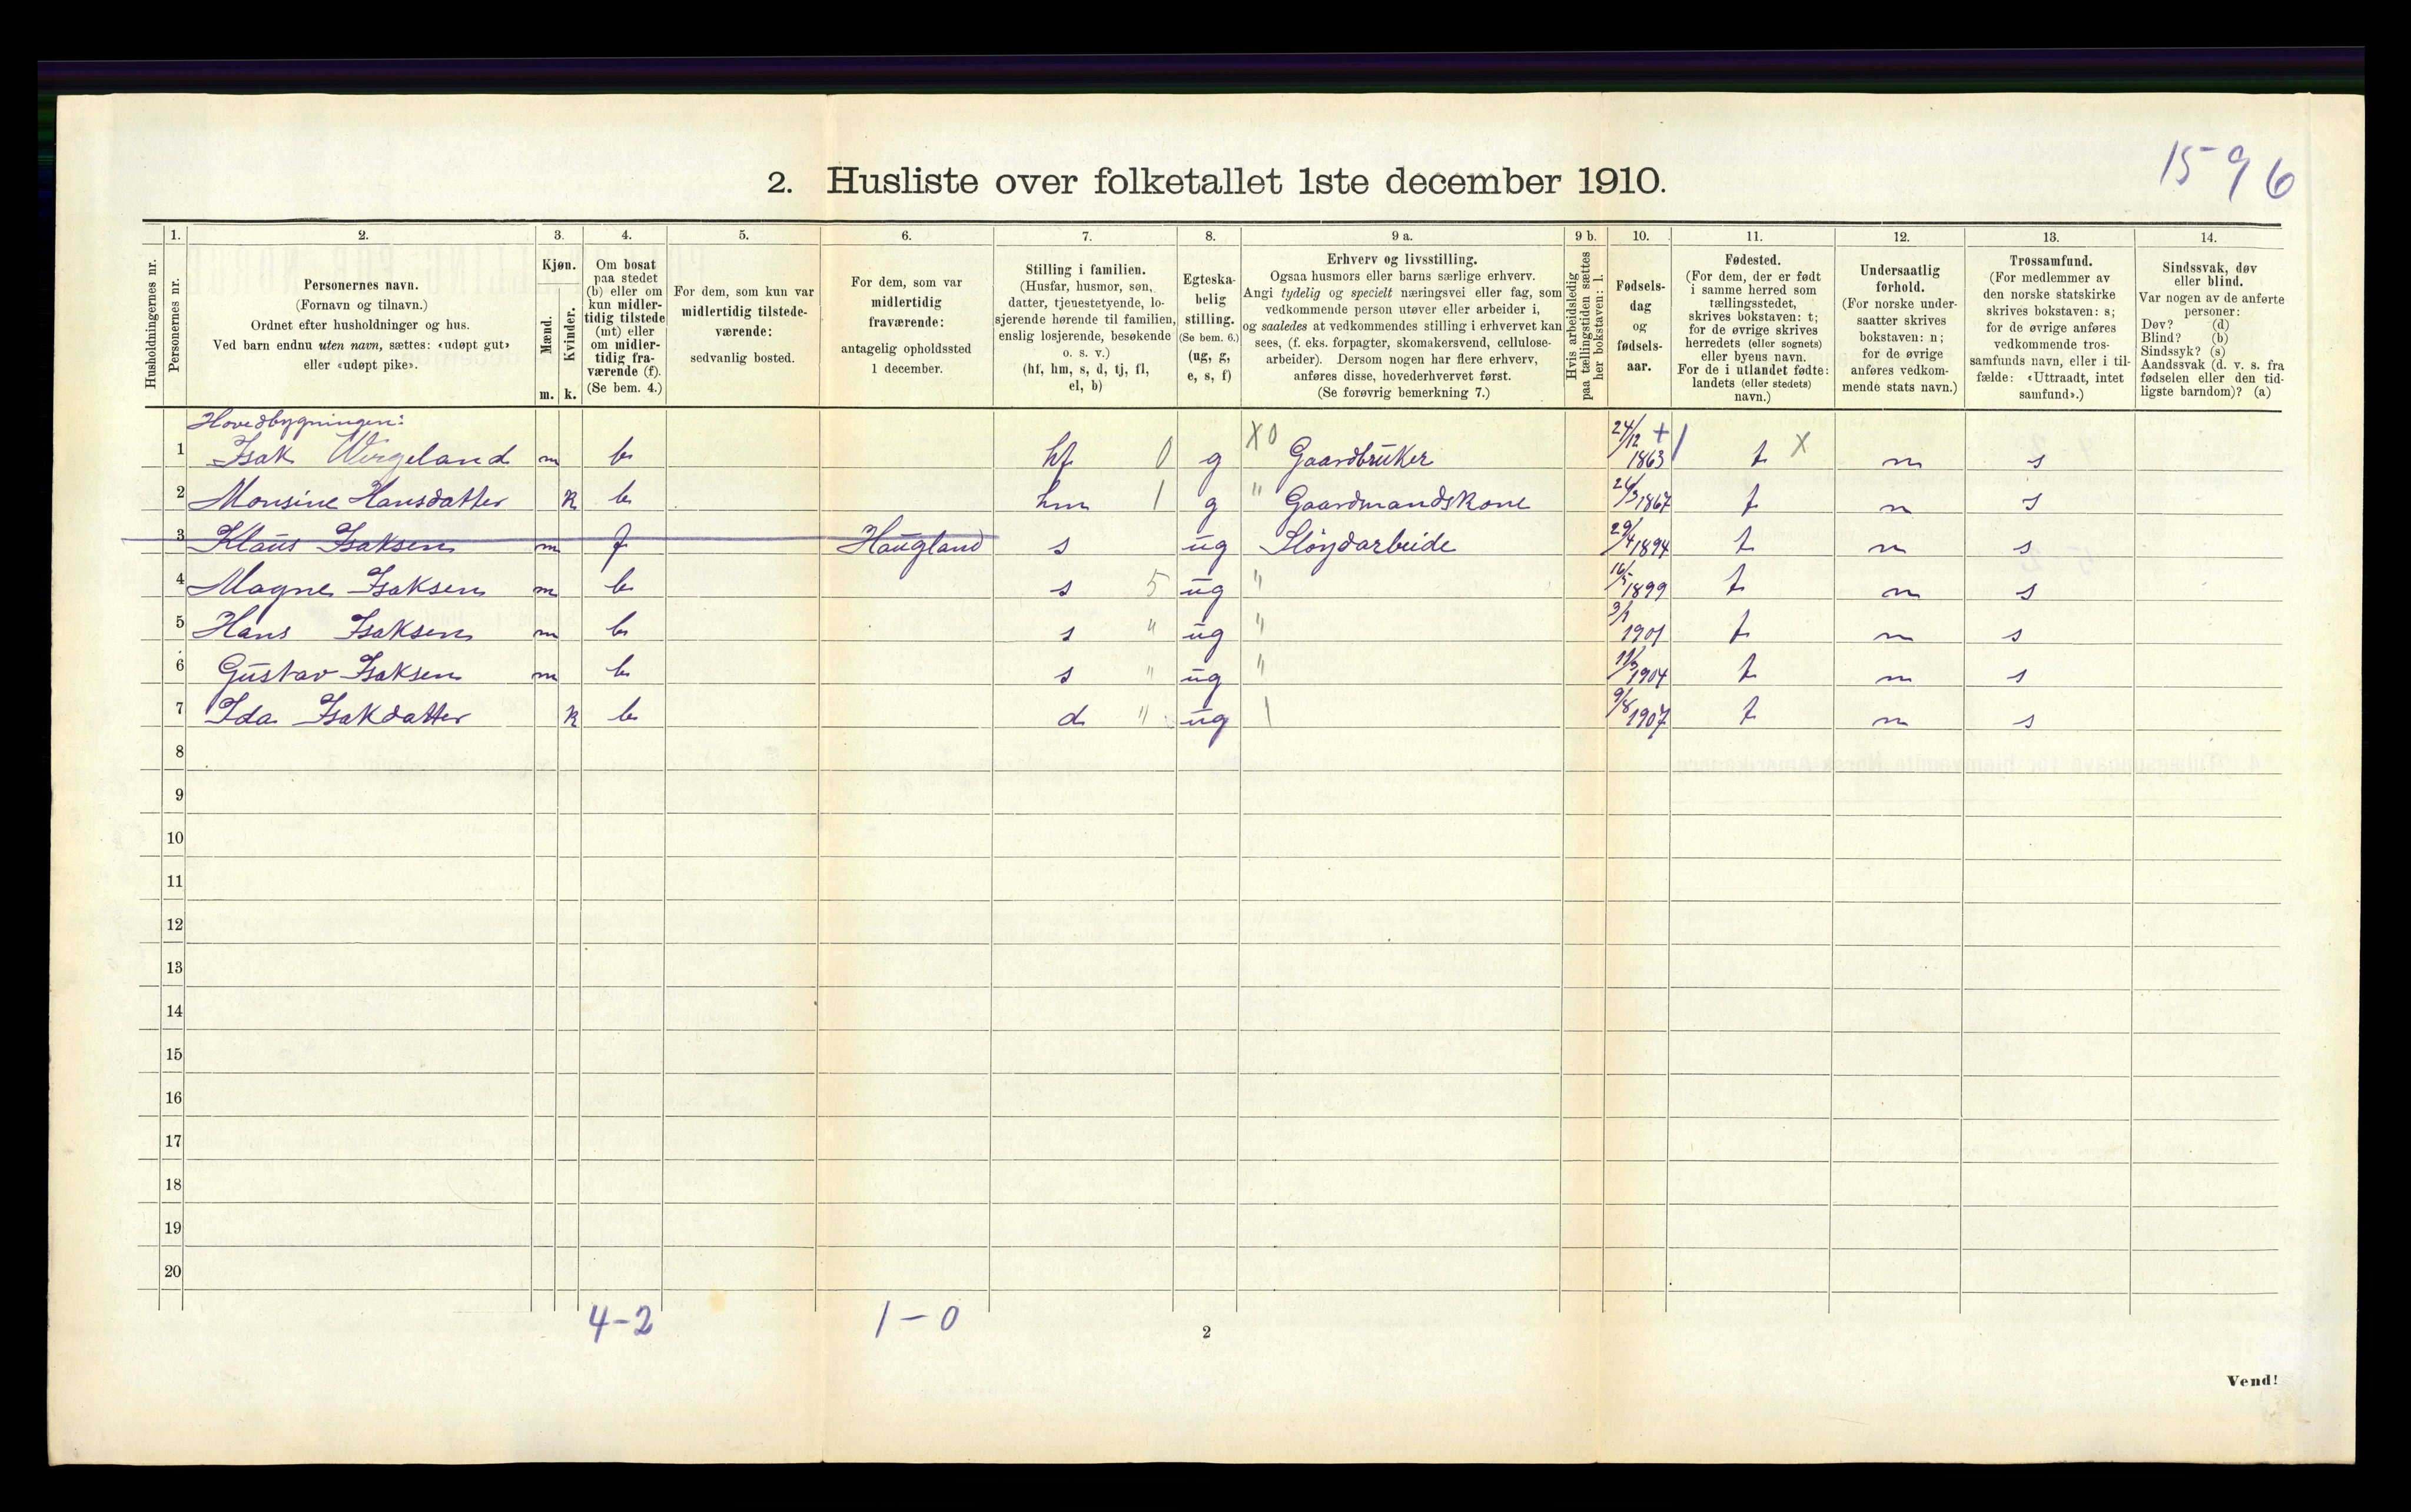 15-96
2. Husliste over folketallet 1ste december 1910.
1. 2. 3. 4. 5. 6. 7. 8. 9 a. 9 b. 10. 11. 12. 13. 14.
Husholdningernes nr.
Personernes nr.
Personernes navn.
(Fornavn og tilnavn.)
Ordnet efter husholdninger og hus.
Ved barn endnu uten navn, sættes: «udøpt gut»
eller «udøpt pike».
Kjøn.
Mænd.
Kvinder.
m. k.
Om bosat
paa stedet
(b) eller om
kun midler-
tidig tilstede
(mt) eller
om midler-
tidig fra-
værende (f).
(Se bem. 4.)
For dem, som kun var
midlertidig tilstede-
værende:
sedvanlig bosted.
For dem, som var
midlertidig
fraværende:
antagelig opholdssted
1 december.
Stilling i familien.
(Husfar, husmor, søn,
datter, tjenestetyende, lo-
sjerende hørende til familien,
enslig losjerende, besøkende
o. s. v.)
(hf, hm, s, d, tj, fl,
el, b)
Egteska-
belig
stilling.
(Se bem. 6.)
(ug, g,
e, s, f)
Erhverv og livsstilling.
Ogsaa husmors eller barns særlige erhverv.
Angi tydelig og specielt næringsvei eller fag, som
vedkommende person utøver eller arbeider i,
og saaledes at vedkommendes stilling i erhvervet kan
sees, (f. eks. forpagter, skomakersvend, cellulose-
arbeider). Dersom nogen har flere erhverv,
anføres disse, hovederhvervet først.
(Se forøvrig bemerkning 7.)
Hvis arbeidsledig
paa tællingstiden sættes
her bokstaven: l.
Fødsels-
dag
og
fødsels-
aar.
Fødested.
(For dem, der er født
i samme herred som
tællingsstedet,
skrives bokstaven: t;
for de øvrige skrives
herredets (eller sognets)
eller byens navn.
For de i utlandet fødte:
landets (eller stedets)
navn.)
Undersaatlig
forhold.
(For norske under-
saatter skrives
bokstaven: n;
for de øvrige
anføres vedkom-
mende stats navn.)
Trossamfund.
(For medlemmer av
den norske statskirke
skrives bokstaven: s;
for de øvrige anføres
vedkommende tros-
samfunds navn, eller i til-
fælde: «Uttraadt, intet
samfund».)
Sindssvak, døv
eller blind.
Var nogen av de anførte
personer:
Døv? (d)
Blind? (b)
Sindssyk? (s)
Aandssvak (d. v. s. fra
fødselen eller den tid-
ligste barndom)? (a)
Hovedbygningen:
1 Isak Wergeland m b hf 0 g X0 Gaardbruker 24/12 + 1863 t X n s
2 Monsine Hansdatter k b hm 1 g " Gaardmandskone 1867 t n s
3 Klaus Isaksen m f Haugland s ug Sløydarbeide 29/4 1894 t n s
4 Magne Isaksen m b s 5 ug " 16/5 1899 t n s
5 Hans Isaksen m b s " ug " 1901 t n s
6 Gustav Isaksen m b s " ug " 1904 t n s
7 Ida Isakdatter k b d " ug 9/8 1907 t n s
8
9
10
11
12
13
14
15
16
17
18
19
20
4-2 1-0
2
Vend!